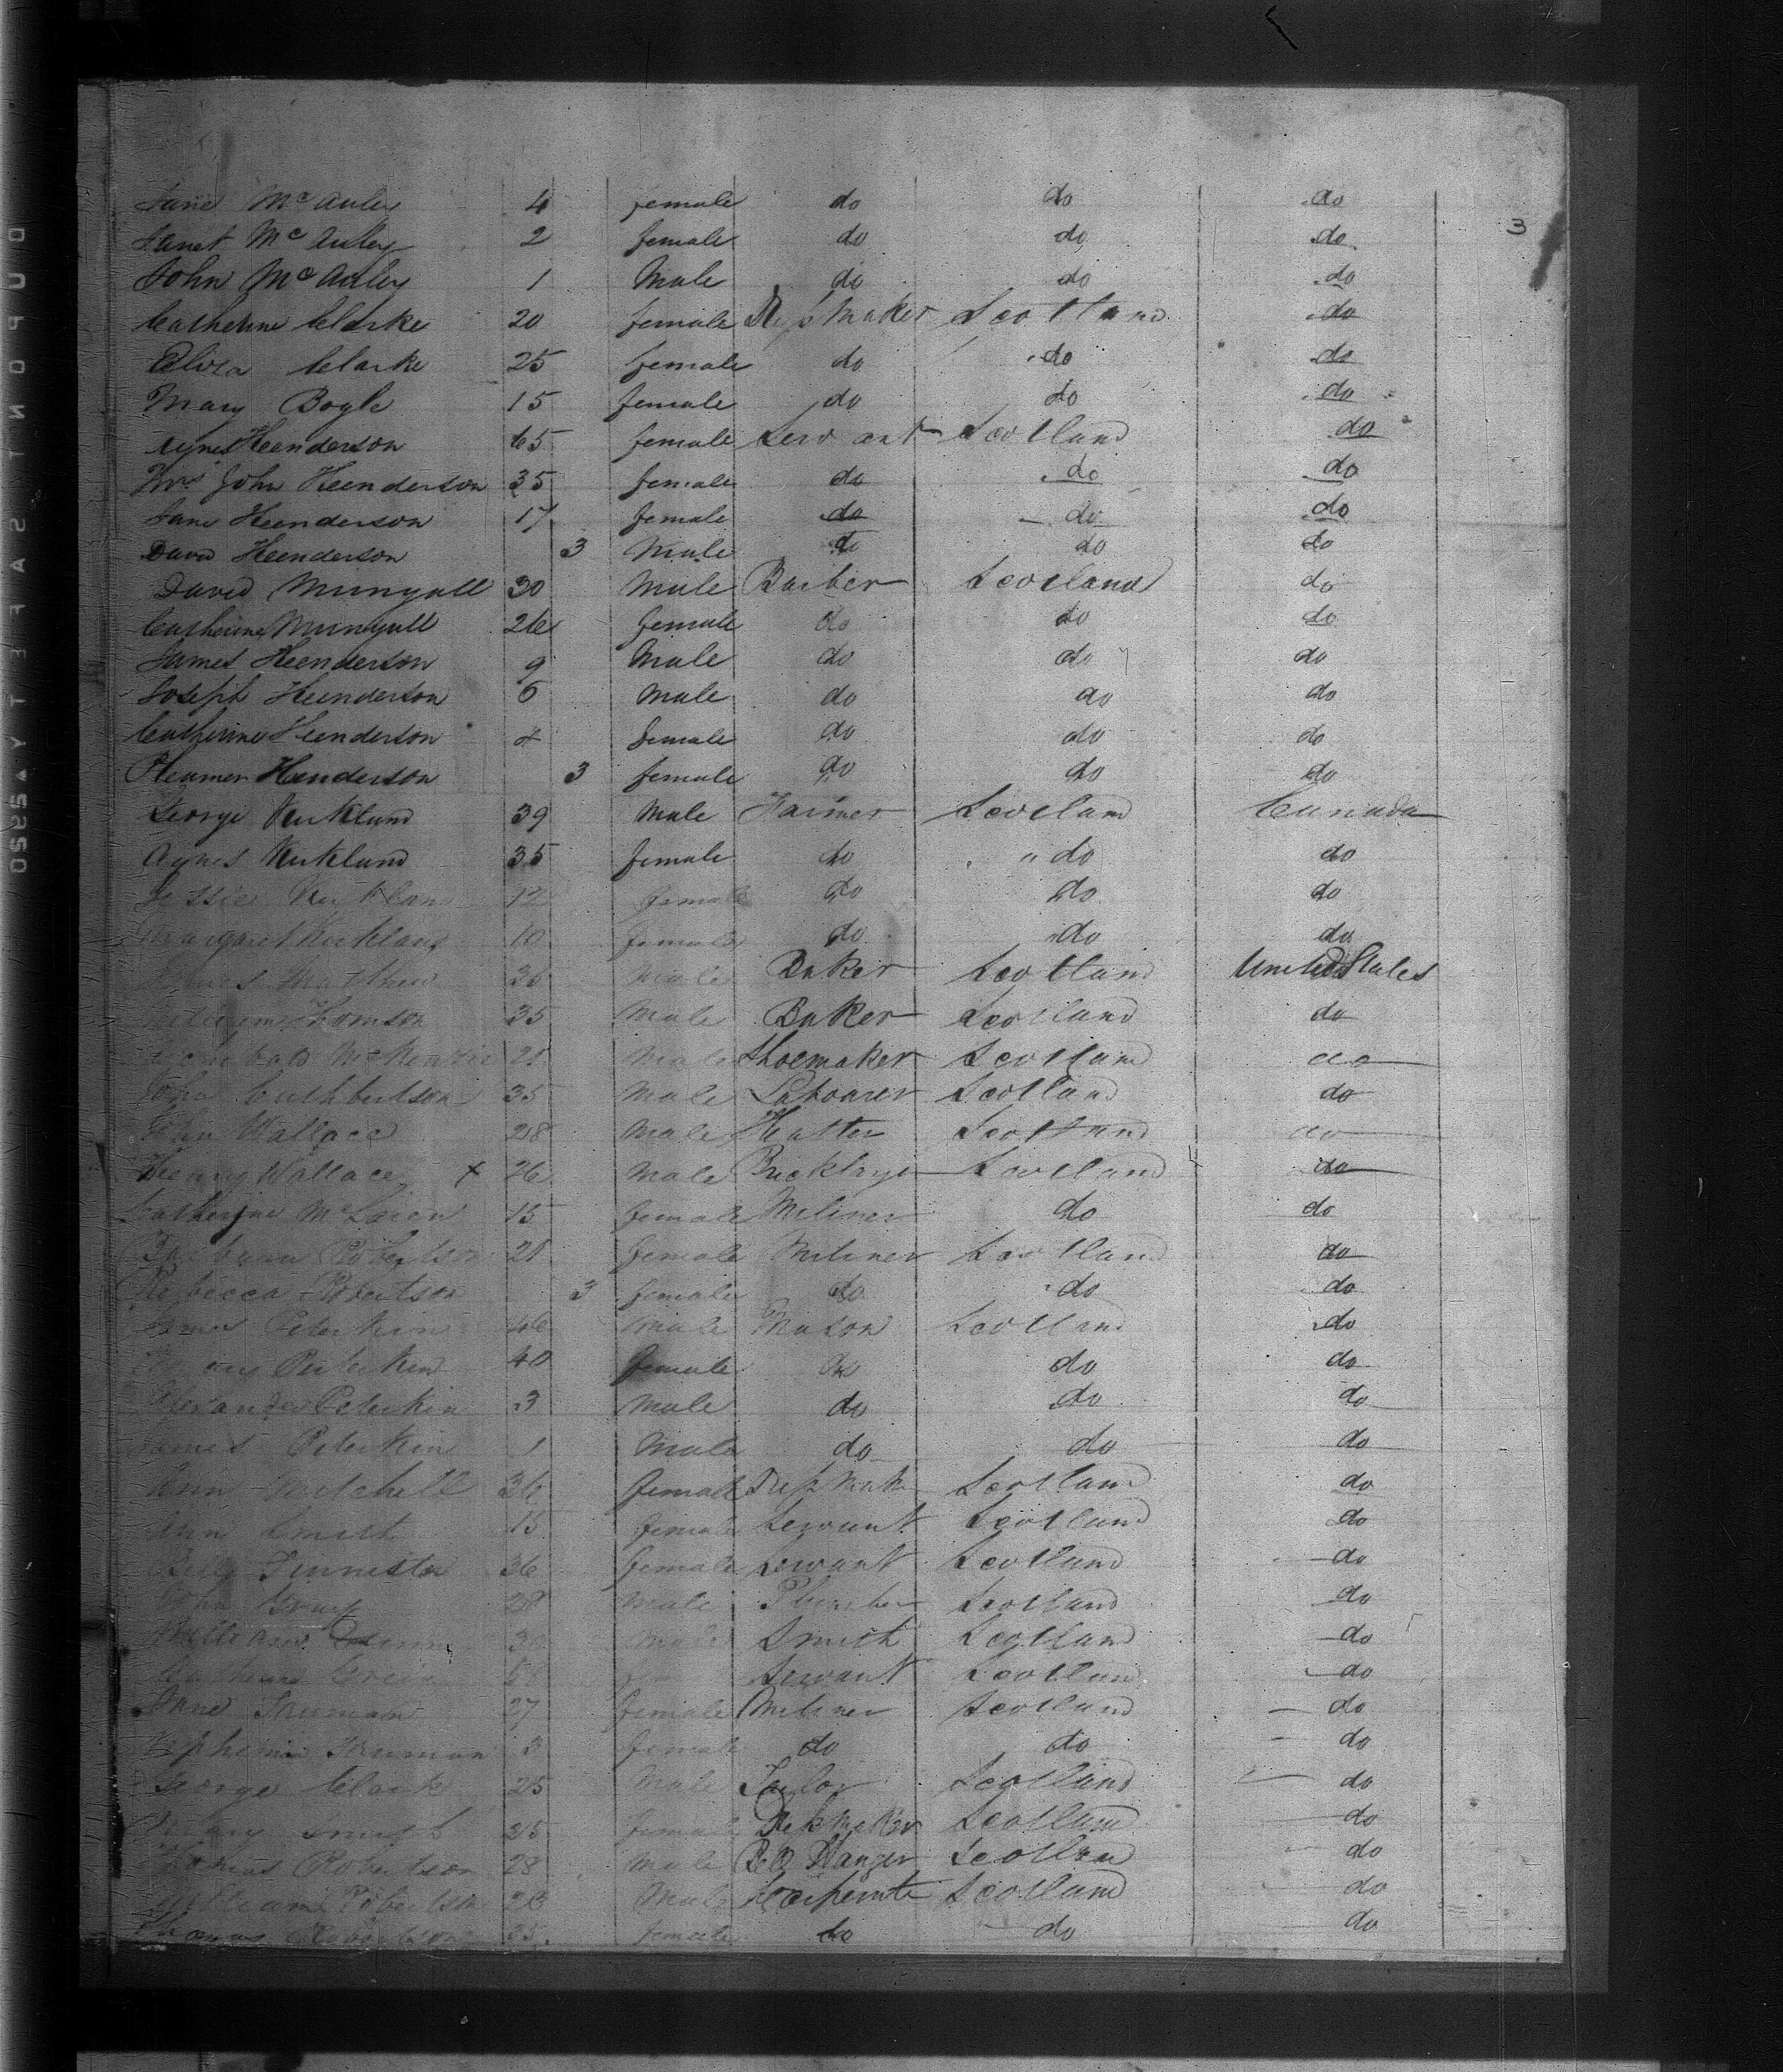 3
Jane McAuley 4 female do do do
Janet McAuley 2 female do do do
John McAuley 1 Male do do do
Catherine Clarke 20 female Drefsmaker Scotland do
Eliza Clarke 25 female do do do
Mary Boyle 15 female do do do
Agnes Heenderson 65 female Servant Scotland do
Mrs John Heenderson 35 female do do do
Jane Heenderson 17 female do do do
David Heenderson 3 Male do do do
David Mungall 30 Male Barber Scotland do
Catherine Mungall 26 female do do do
James Heenderson 9 Male do do do
Joseph Heenderson 6 Male do do do
Catherine Heenderson female do do do
Henderson 3 female do do do
George Kirkland 39 Male Farmer Scotland Canada
Agnes Kirkland 35 female do do do
Jessie Kirkland 12 female do do do
Margaret Kirkland 10 female do do do
Matthew Male Baker Scotland United States
William Thomson 35 Male Baker Scotland do
Archibald McKenzie 21 Male Shoemaker Scotland do
John Cuthbertson 35 Male Labourer Scotland do
John Wallace 28 Male Hatter Scotland do
Henry Wallace x 26 Male Scotland do
Catherine 15 female Miliner do do
Barbara Robertson 21 female Miliner Scotland do
Rebecca Robertson 3 female do do do
James Peterkin 46 Male Mason Scotland do
Peterkin 40 female do do do
Alexander Peterkin 3 Male do do do
James Peterkin 1 Male do do do
Ann Mitchell 36 female Drefs Mak Scotland do
Ann Smith 15 female Servant Scotland do
36 female Servant Scotland do
John 28 Male Plumber Scotland do
William Male Smith Scotland do
Catherine Servant Scotland do
Jane 27 female Miliner Scotland do
3 female do do do
George Clark 25 Male Tailor Scotland do
Mary Smith 25 female Scotland do
Thomas Robertson 28 Male Bell Hanger Scotland do
William Robertson 28 Male Scotland do
Robertson 25 female do do do